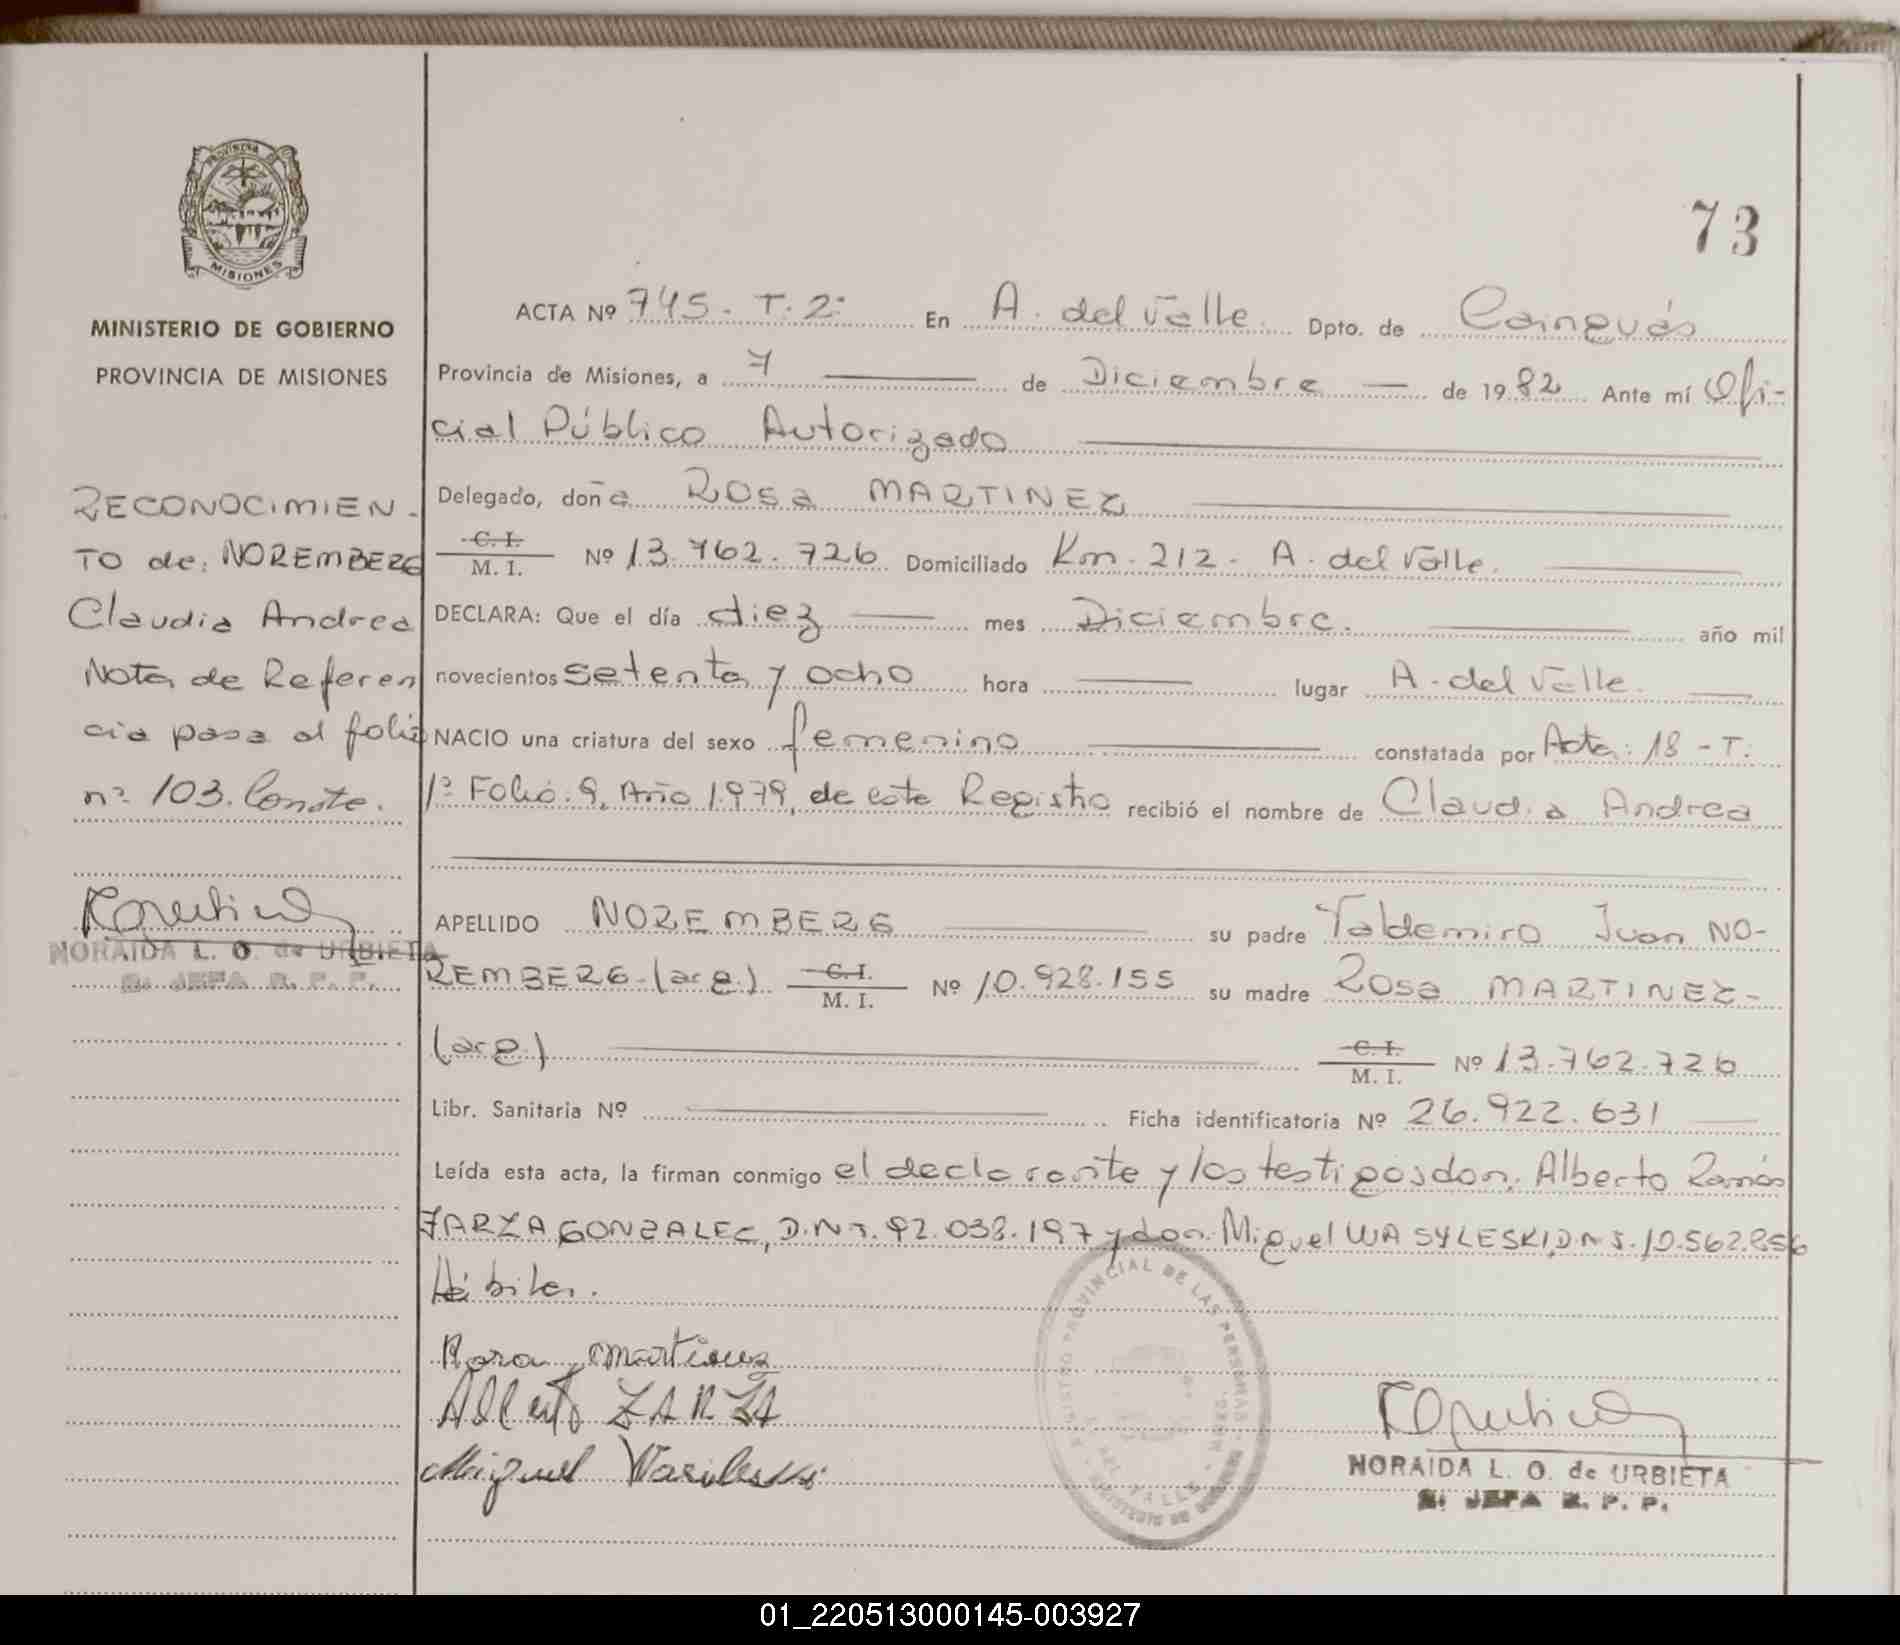 73
PROVINCIA DE
MISIONES
MINISTERIO DE GOBIERNO
PROVINCIA DE MISIONES
RECONOCIMIEN-
TO de: NOREMBERG
Claudia Andrea
Nota de Referen
cia pasa al folio
nº 103. Conste.
NORAIDA L. O. de URBIETA
JEFA R. P. P.
ACTA Nº 745 - T. 2º En A. del Valle. Dpto. de Cainguás
Provincia de Misiones, a 7 de Diciembre de 1982 Ante mí Ofi-
cial Público Autorizado
Delegado, doña Rosa MARTINEZ
C. I.
M. I. Nº 13.762.726 Domiciliado Km. 212 - A. del Valle.
DECLARA: Que el día diez mes Diciembre. año mil
novecientos setenta y ocho hora lugar A. del Valle.
NACIO una criatura del sexo femenino constatada por Acta: 18 - T:
1º Folio: 9, Año 1.979, de este Registro recibió el nombre de Claudia Andrea
APELLIDO NOREMBERG su padre Valdemiro Juan NO-
REMBERG - (arg.) C. I.
M. I. Nº 10.928.155 su madre Rosa MARTINEZ -
(arg.) C. I.
M. I. Nº 13.762.726
Libr. Sanitaria Nº Ficha identificatoria Nº 26.922.631
Leída esta acta, la firman conmigo el declarante y los testigos don: Alberto Ramón
ZARZA GONZALEZ, D.N.I. 92.038.197 y don Miguel WASYLESKI, D.N.I. 10.562.856
Hábiles.
Rosa Martinez
Albert ZARZA
Miguel Wasileski
REGISTRO PROVINCIAL DE LAS PERSONAS
DEL VALLE
MINISTERIO DE GOBIERNO
NORAIDA L. O. de URBIETA
JEFA R. P. P.
01_220513000145-003927